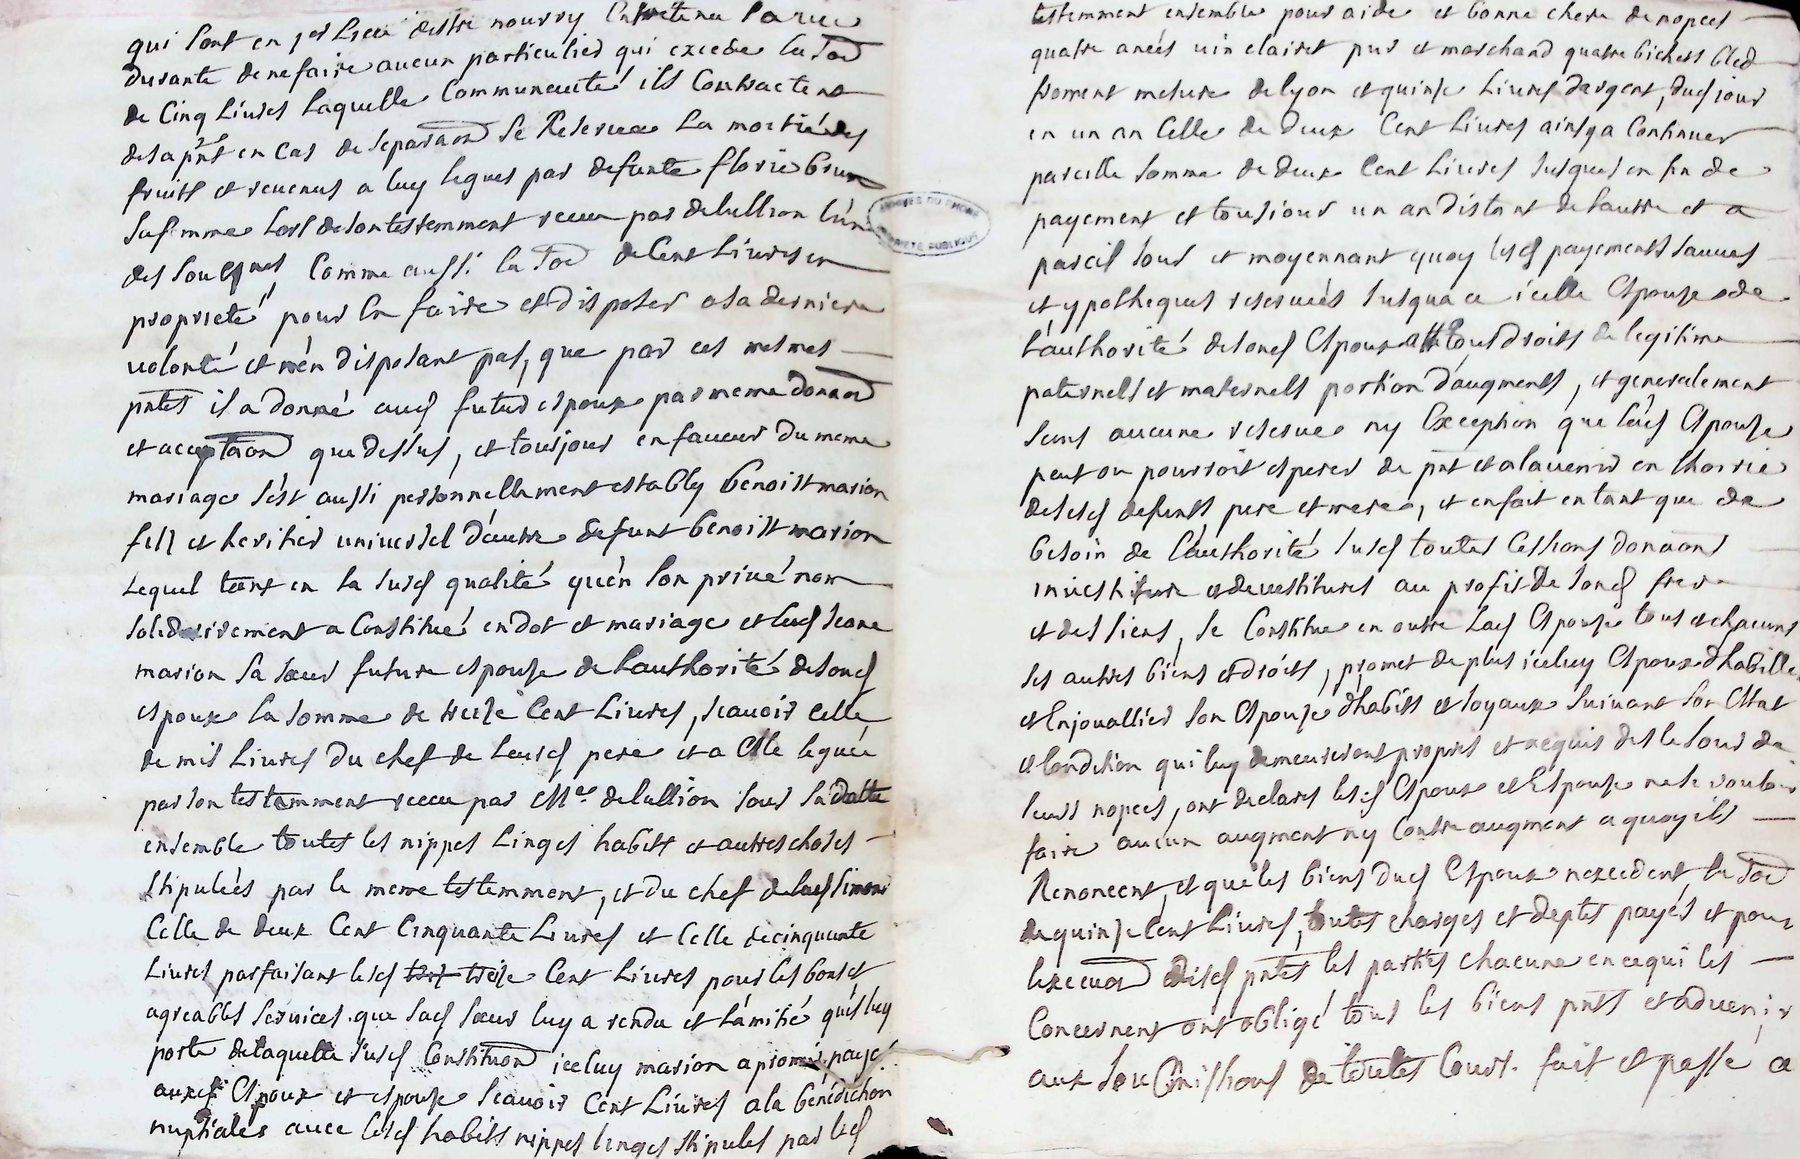 qui sont en 
durante de ne faire aucun particulier qui excede la so͞e
de Cinq Livres laquelle Communeauté ils Contractent
de sa pnt en cas de separaon se Reservea la moitié des
fruits et revenus a luy legues par defunte florie brun
sa femme lors de son testemment receu par delullion l'un
des sousgnes, Comme aussi la so͞e de Cent Livres en
proprieté pour En faire et disposer a sa derniere
volonté et n'en disposant pas, que par ces mesmes
pntes il a donné aud futur espoux par meme donaon
et acceptaon que dessus, et tousjours en faveur du meme
mariage s'est aussi personnellement estably benoist marion
fils et heritier universel d'autre defunt benoist marion
Lequel tant en la susd qualité qu'en son privé nom
solidairement a Constitué en dot et mariage et lad Jeane
marion sa sœur future espouse de l'authorité de sond
espoux la somme de treize Cent Livres, scavoir celle
de mil Livres du chef de leursd pere et a Elle leguée
par son testemment receu par Me delullion sous sa datte
ensemble toutes les nippes Linges habits et autres choses
stipulées par le meme testemment, et du chef de lad simone
Celle de deux Cent Cinquante Livres et Celle de cinquante
Livres parfaisant lesd treize Cent Livres pour les bons et
agreables services que sad sœur luy a rendu et l'amitié qu'il luy
porte de laquelle susd Constituon icelluy marion a promis payer
auxd Espoux et espouse scavoir Cent Livres a la bénédiction
nuptiales avec lesd habits nippes linges stipules par led
testemment ensemble pour aide et bonne chere de nopces
quatre anées vin clairet pur et marchand quatre bichets bled
froment mesure de lyon et quinze Livres d'argent, dud jour
en un an Celle de deux Cent Livres ainsy a Continuer
pareille somme de deux Cent Livres jusques en fin de
payement et tousjour un an distant de l'autre et a
pareil jour et moyennant quoy lesd payements sauves
et ypotheques reservées jusqu'a ce icelle Espouse de
l'authorité de sond Espoux tous droits de legitime
paternels et maternels portion d'augments, et generalement
sans aucune reserve ny Exception que lad Espouse
peut ou pourroit esperer de pnt et a l'avenir en l'hoirie
de sesd defunts pere et mere, et en fait en tant que de
besoin de l'authorité susd toutes Cessions donaons
investiture et devestitures au profit de sond frere
et des siens, se Constitue en outre lad Espouse tous et chacuns
ses autres biens et droits, promet de plus iceluy Espoux d'habiller
et Enjoualler son Espouse d'habits et Joyaux suivant son Estat
et Condition qui luy demeureront propres et acquis des le jour de
leurs nopces, ont declares lesd Espoux et Espouse ne se vouloir
faire aucun augment ny Contre augment a quoy ils
Renoncent, et que les biens dud Espoux n'excedent la so͞e
de quinze Cent Livres, toutes charges et deptes payés et pour
l'execuon desd pntes les parties chacune en ce qui les
Concernent ont obligé tous les biens pnts et advenir
aux soubmissions de toutes Cours. fait et passé a
ARCHIVES DU RHONE
PROPRIETE PUBLIQUE